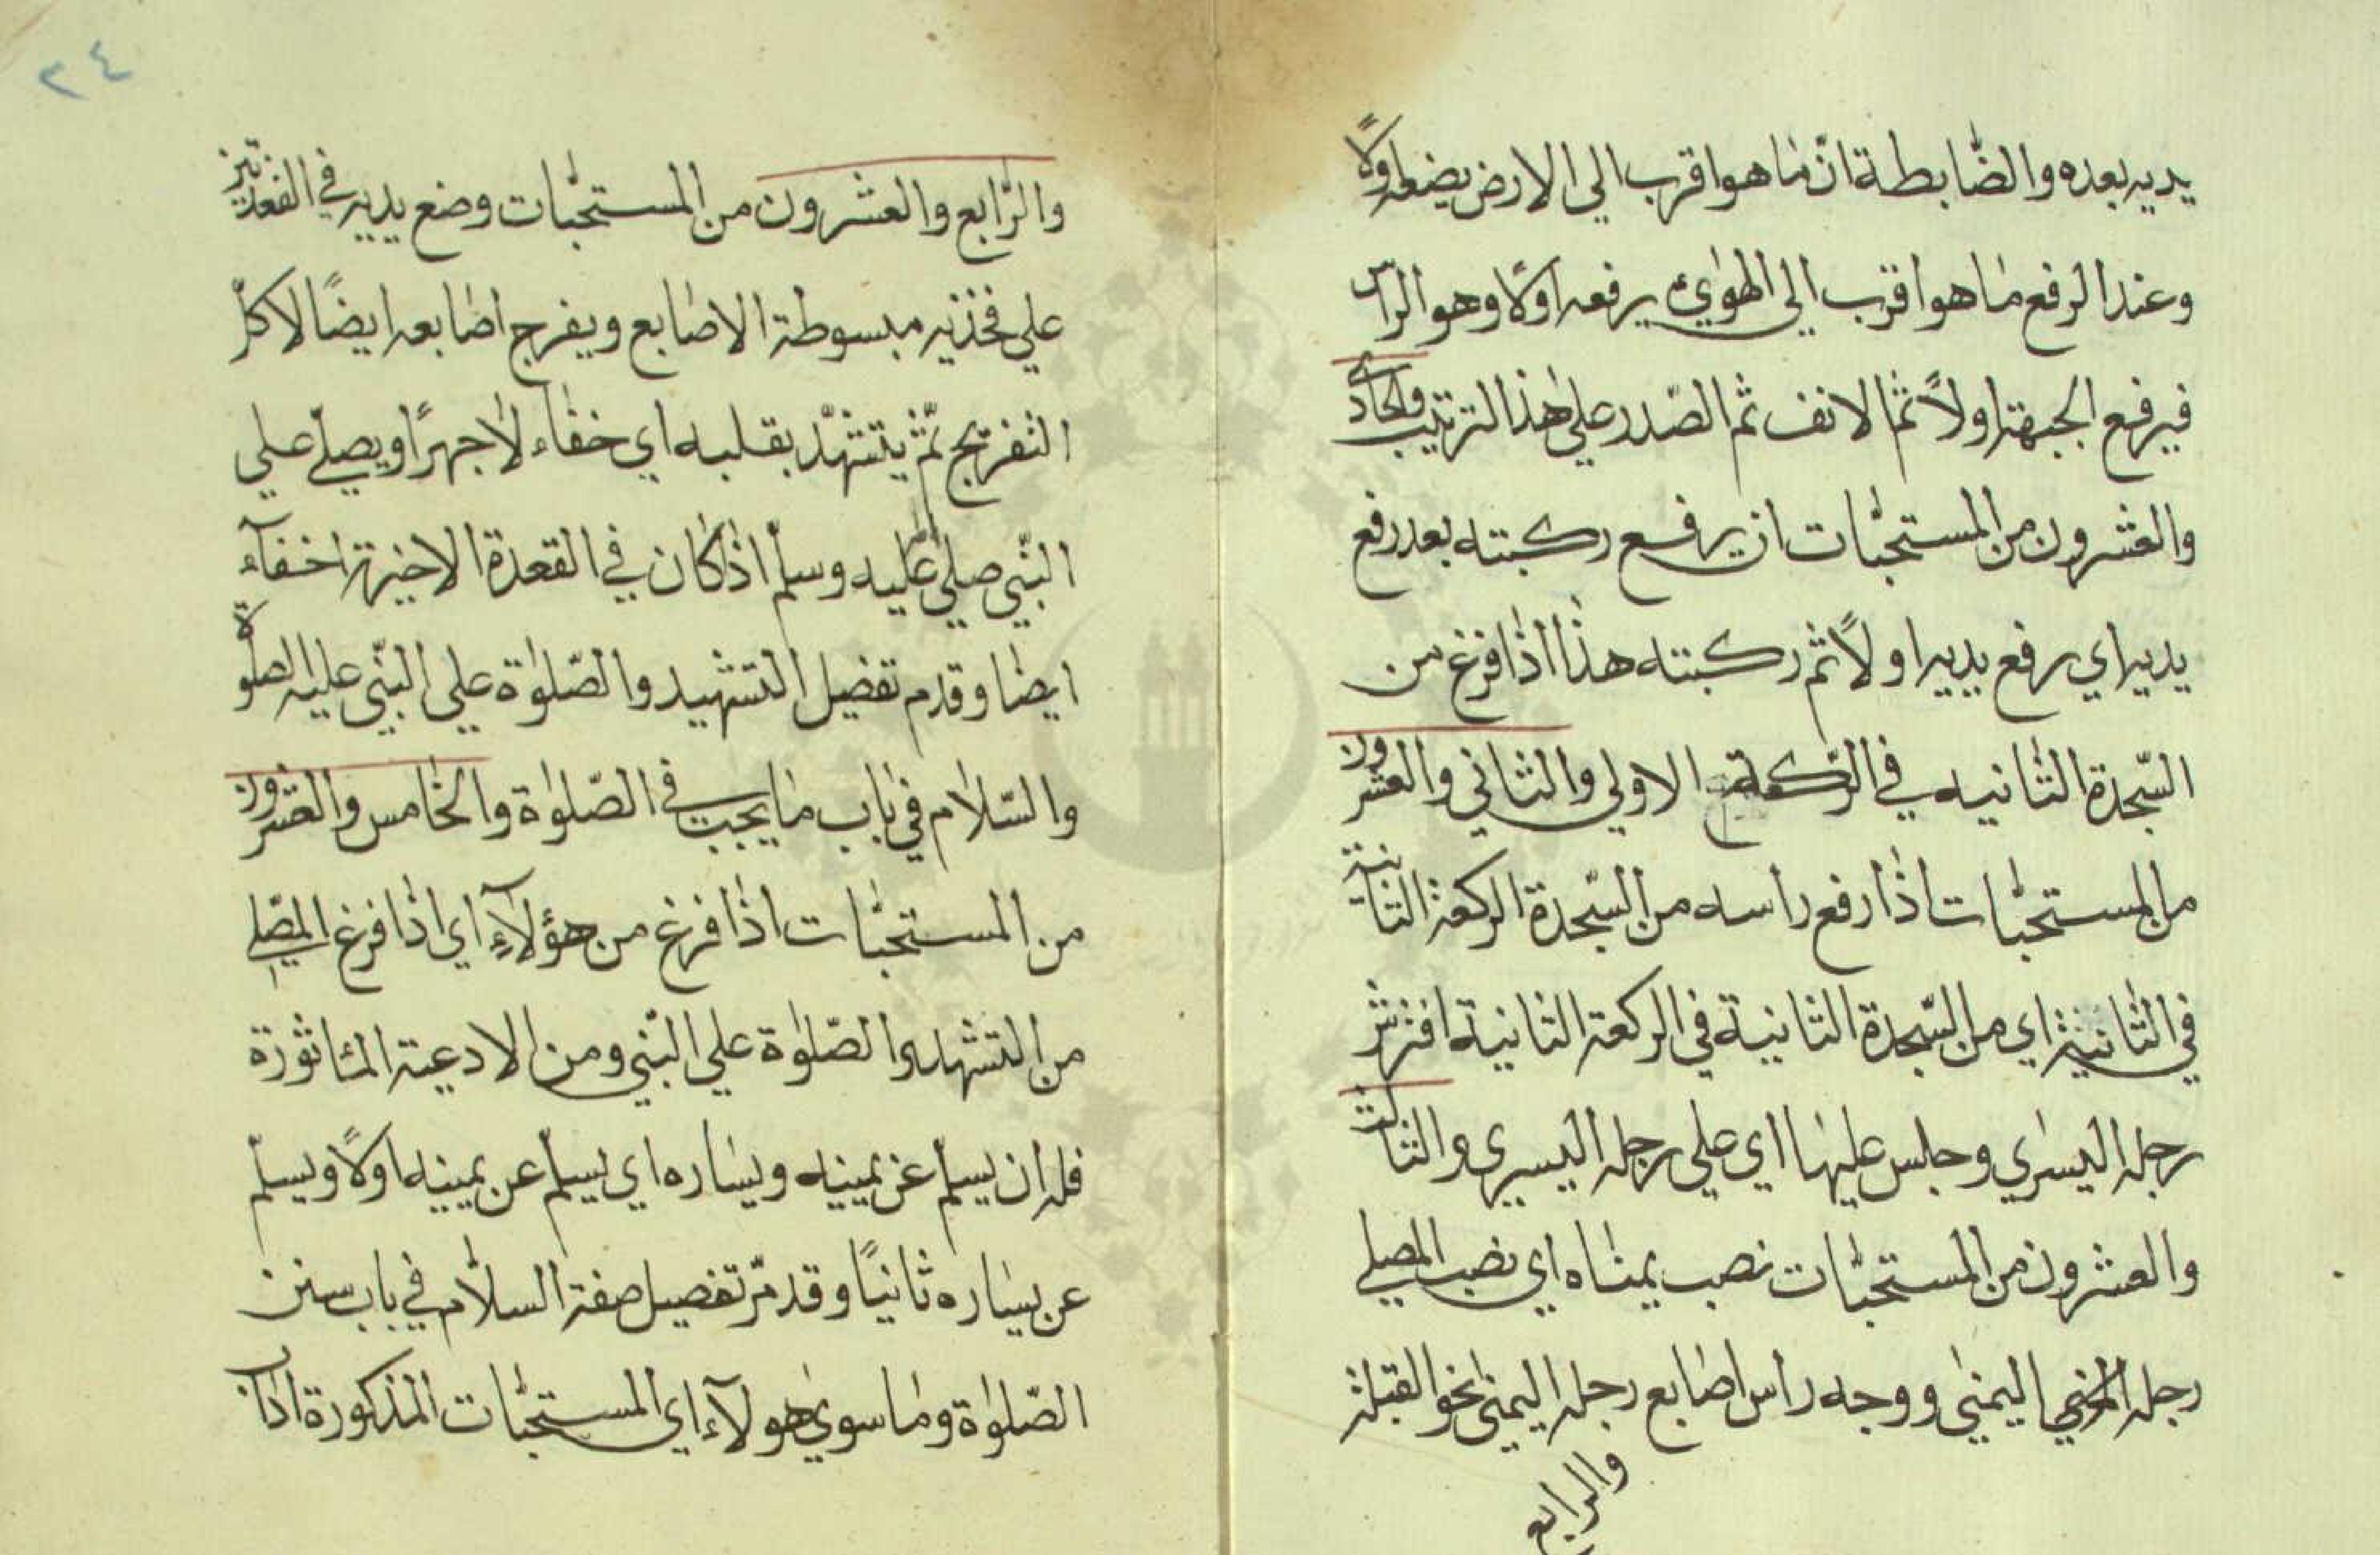 يديه بعده والضابطة انّ ما هو اقرب الي الارض يضعه اولًا
وعند الرفع ما هو اقرب الي الهوائ يرفعه اولًا وهو الراس
فيرفع الجبهة اولاً ثمّ الانف ثم الصّدر علي هذا الترتيب والحادي
والعشرون من المستحبّات ان يرفع ركبته بعد رفع
يديه اي رفع يديه اولاً ثم ركبته هذا اذا فرغ من
السّجدة الثانيه في الرّكعة الاولي والثاني والعشرون
من المستحبّات اذا رفع راسه من السّجدة الركعة الثانية
في الثانية اي من السّجدة الثانية في الركعة الثانية افترش
رجله اليسري وجلس عليها اي علي رجله اليسري والثالث
والعشرون من المستحبّات نصب يمناه اي نصب المصلي
رجله اليمني ووجه راس اصابع رجله اليمني نحو القبلة
والرابع
٢٤
والرّابع والعشرون من المستحبّات وضع يديه في القعدتين
علي فخذيه مبسوطة الاصابع ويفرج اصابعه ايضًا لا كلّ
التفريج ثمّ يتشهّد بقلبه اي خفاء لا جهرًا ويصلّي علي
النّبي صلي عليه وسلّم اذا كان في القعدة الاخيرة اخفآء
ايضا وقدم تفضيل التشهيد والصّلوٰة علي النّبي عليه الصلوة
والسّلام في باب ما يجب في الصّلوٰة والخامس والعشرون
من المستحبّات اذا فرغ من هؤلآء اي اذا فرغ المصّلي
من التشهد والصّلوٰة علي النّبي ومن الادعية المأثورة
فله ان يسلّم عن يمينه ويساره اي يسلّم عن يمينه اولًا ويسلّم
عن يساره ثانيًا وقد مرّ تفصيل صفة السلام في باب سنن
الصّلوٰة وما سوي هولآء اي المستحبّات المذكورة اذا كان